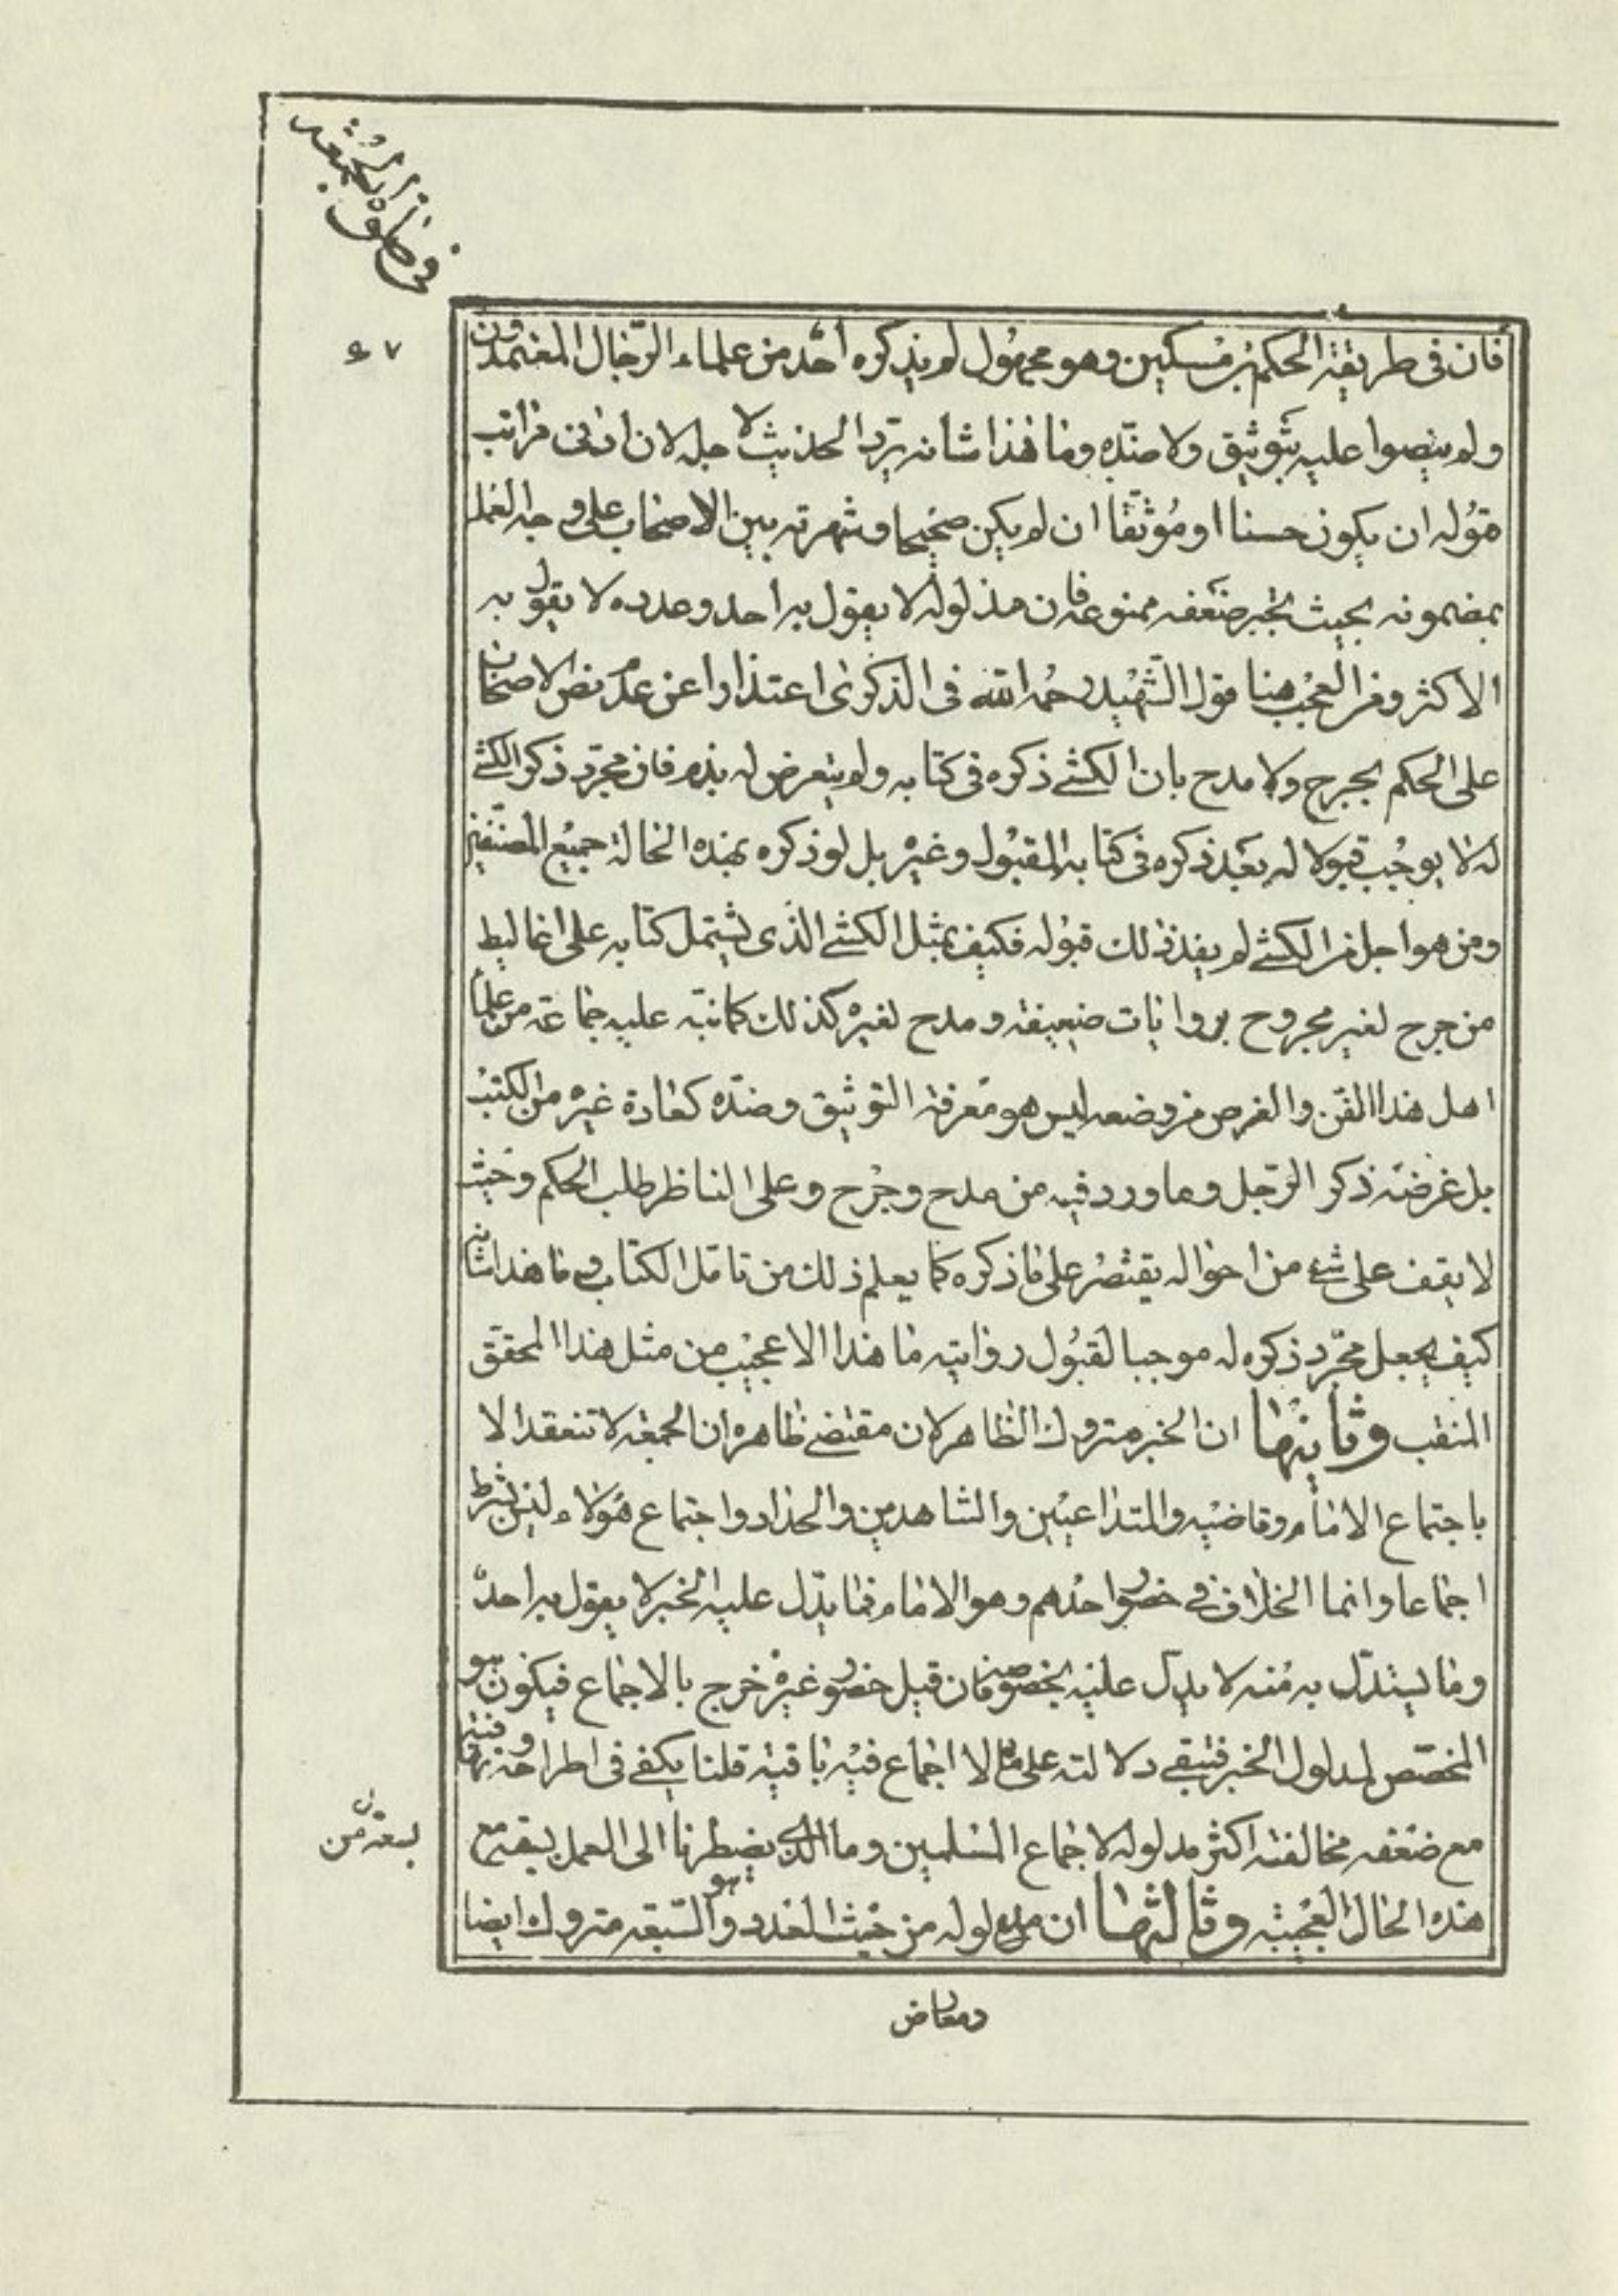 في صلوة الجمعة
٧٤
فان في طريقه الحكم بن مسكين وهو مجهول لم يذكره احد من علماء الرجال المعتمدون
ولم ينصوا عليه بتوثيق ولا ضده وما هذا شانه يرد الحديث لاجله لان ادنى مراتب
قوله ان يكون حسنا او موثقا ان لم يكن صحيحا وشهرته بين الاصحاب على وجه العمل
بمضمونه بحيث يجبر ضعفه ممنوعة فان مدلوله لا يقول به احد وعدده لا يقول به
الاكثر ومن العجب هنا قول الشهيد رحمه الله في الذكرى اعتذارا عن عدم نص الاصحاب
على الحكم بجرح ولا مدح بان الكشي ذكره في كتابه ولم يتعرض له بذم فان مجرد ذكر الكشي
له لا يوجب قبولا له بعد ذكره في كتابه المقبول وغيره بل لو ذكره بهذه الحالة جميع المصنفين
ومن هو اجل من الكشي لم يفد ذلك قبوله فكيف بمثل الكشي الذي يشتمل كتابه على اغاليط
من جرح لغير مجروح بروايات ضعيفة ومدح لغيره كذلك كما نبه عليه جماعة من علماء
اهل هذا الفن والغرض من وضعه ليس هو معرفة التوثيق وضده كعادة غيره من الكتب
بل غرضه ذكر الرجل وما ورد فيه من مدح وجرح وعلى الناظر طلب الحكم وحيث
لا يقف على شئ من احواله يقتصر على ما ذكره كما يعلم ذلك من تامل الكتاب وما هذا شانه
كيف يجعل مجرد ذكره له موجبا لقبول روايته ما هذا الا عجيب من مثل هذا المحقق
المنقب وثانيها ان الخبر متروك الظاهر لان مقتضى ظاهره ان الجمعة لا تنعقد الا
باجتماع الامام وقاضيه والمتداعيين والشاهدين والحداد واجتماع هؤلاء ليس بشرط
اجماعا وانما الخلاف في حضور احدهم وهو الامام فما يدل عليه الخبر لا يقول به احد
وما يستدل به منه لا يدل عليه بخصوصه فان قيل حضور غيره خرج بالاجماع فيكون هو
المخصص لمدلول الخبر فتبقى دلالته على ما لا اجماع فيه باقية قلنا يكفي في اطراحه
مع ضعفه مخالفة اكثر مدلوله لاجماع المسلمين وما الذي يضطرنا الى العمل ببقيته مع
هذه الحال العجيبة وثالثها ان مدلوله من حيث العدد وهو السبعة متروك ايضا